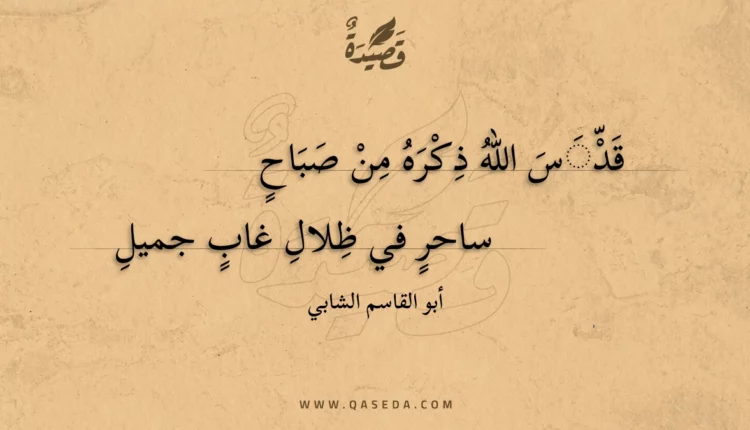 قَصِيدَةٌ
قَدّْ◌َسَ اللهُ ذِكْرَهُ مِنْ صَبَاحٍ
ساحرٍ في ظِلالِ غابٍ جميلِ
أبو القاسم الشابي
WWW.QASEDA.COM